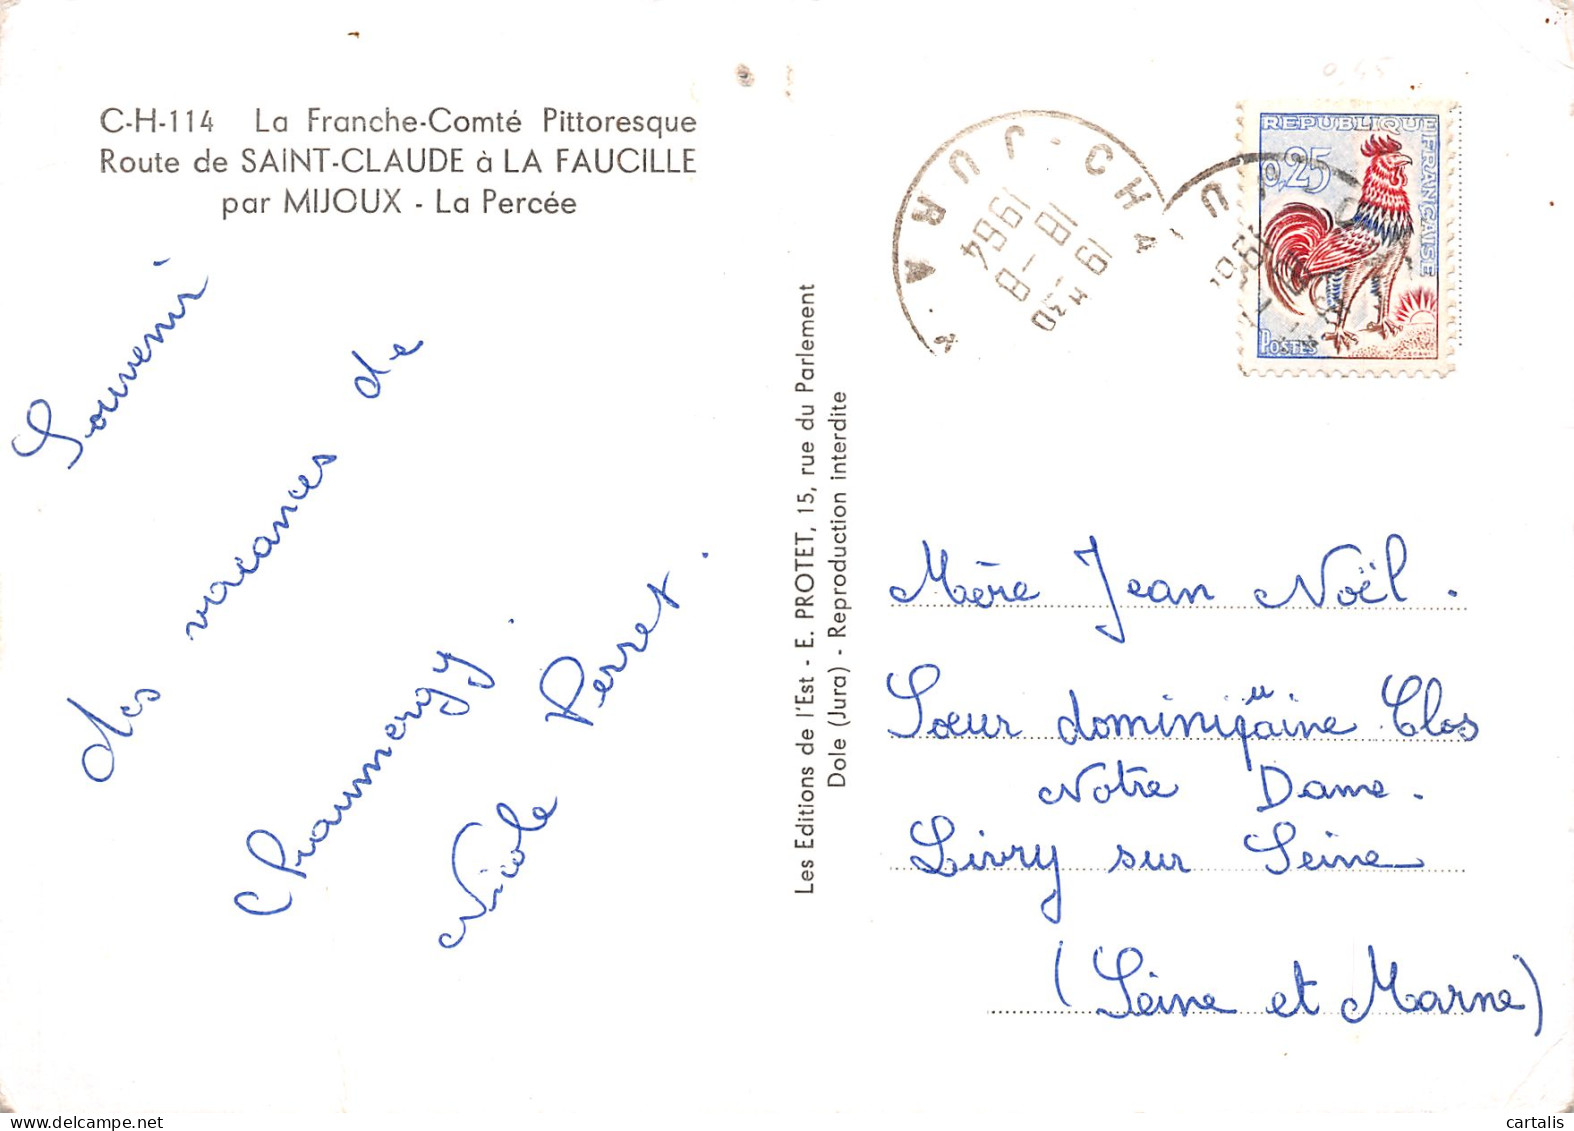 C-H-114 La Franche-Comté Pittoresque
Route de SAINT-CLAUDE à LA FAUCILLE
par MIJOUX - La Percée
Souvenir
des vacances de
Chaumergy.
Nicole Perret.
Les Editions de l'Est - E. PROTET, 15, rue du Parlement
Dole (Jura) - Reproduction interdite
0,45
JURA
CHA
19 H 30
18 - 8
1964
REPUBLIQUE FRANÇAISE
0,25
POSTES
Mère Jean Noël.
Soeur dominiquaine Clos
Notre Dame.
Livry sur Seine
(Seine et Marne)
cartalis